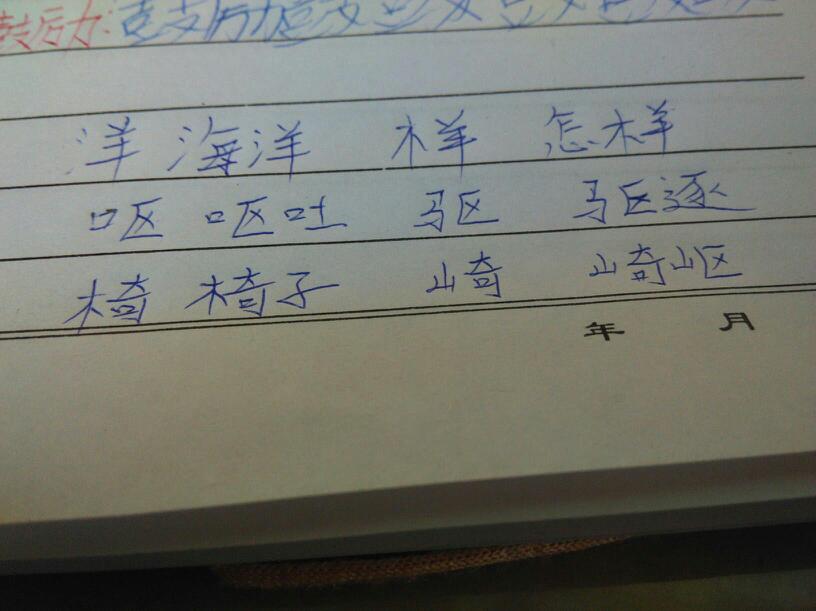 洋 海洋 样 怎样
呕 呕吐 驱 驱逐
椅 椅子 崎 崎岖
年 月